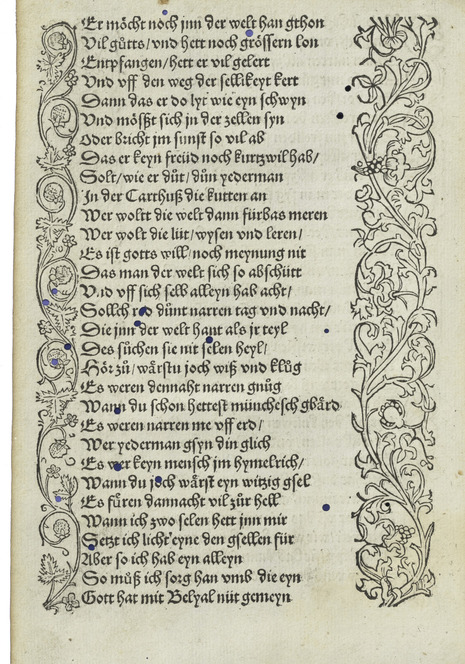 Er möcht noch jnn der welt han gthon
Vil gůtts/ vnd hett noch grössern lon
Entpfangen/ hett er vil gelert
Vnd vff den weg der sellikeyt kert
Dann das er do lyt wie eyn schwyn
Vnd mößt sich in der zellen syn
Oder bricht jm sunst so vil ab
Das er keyn freüd noch kurtzwil hab/
Solt/ wie er důt/ důn yederman
Jn der Carthuß die kutten an
Wer woltt die welt dann fürbas meren
Wer wolt die lüt/ wysen vnd leren/
Es ist gotts will/ noch meynung nit
Das man der welt sich so abschütt
Vnd vff sich selb alleyn hab acht/
Sollch red důnt narren tag vnd nacht/
Die jnn der welt hant als jr teyl
Des sůchen sie nit selen heyl/
Hör zů/ wärstu joch wiß vnd klůg
Es weren dennaht narren gnůg
Wann du schon hettest münchesch gbärd
Es weren narren me vff erd/
Wer yederman gsyn din glich
Es wer keyn mensch jm hymelrich/
Wann du joch wärst eyn witzig gsel
Es fůren dannacht vil zůr hell
Wann ich zwo selen hett jnn mir
Setzt ich licht eyne den gsellen für
Aber so ich hab eyn alleyn
So můß ich sorg han vmb die eyn
Gott hat mit Belyal nüt gemeyn